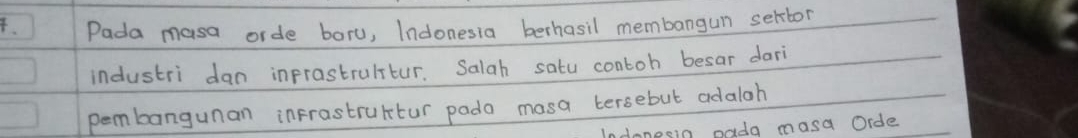 7. Pada masa orde baru, Indonesia berhasil membangun sektor
industri dan inprastruktur. Salah satu contoh besar dari
pembangunan infrastruktur pada masa tersebut adalah
Indonesia pada masa Orde